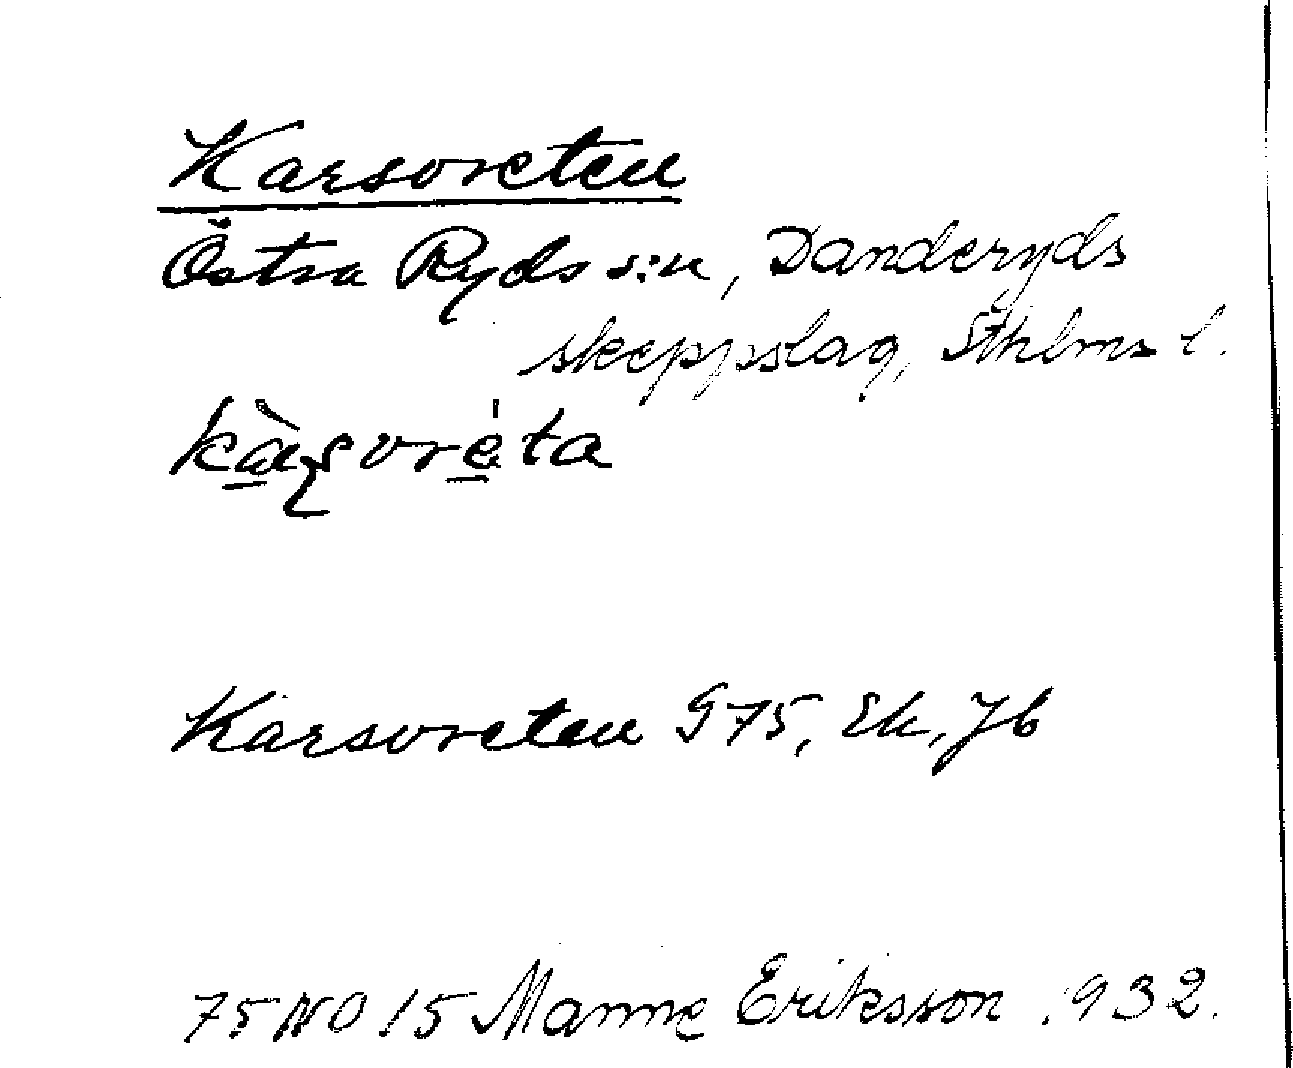 Karsvreten
Östra Ryds s:n, Danderyds
skeppslag, Sthlms l.
Karsvreten G75, Ek, Jb
75 NO 15 Manne Eriksson 1932.